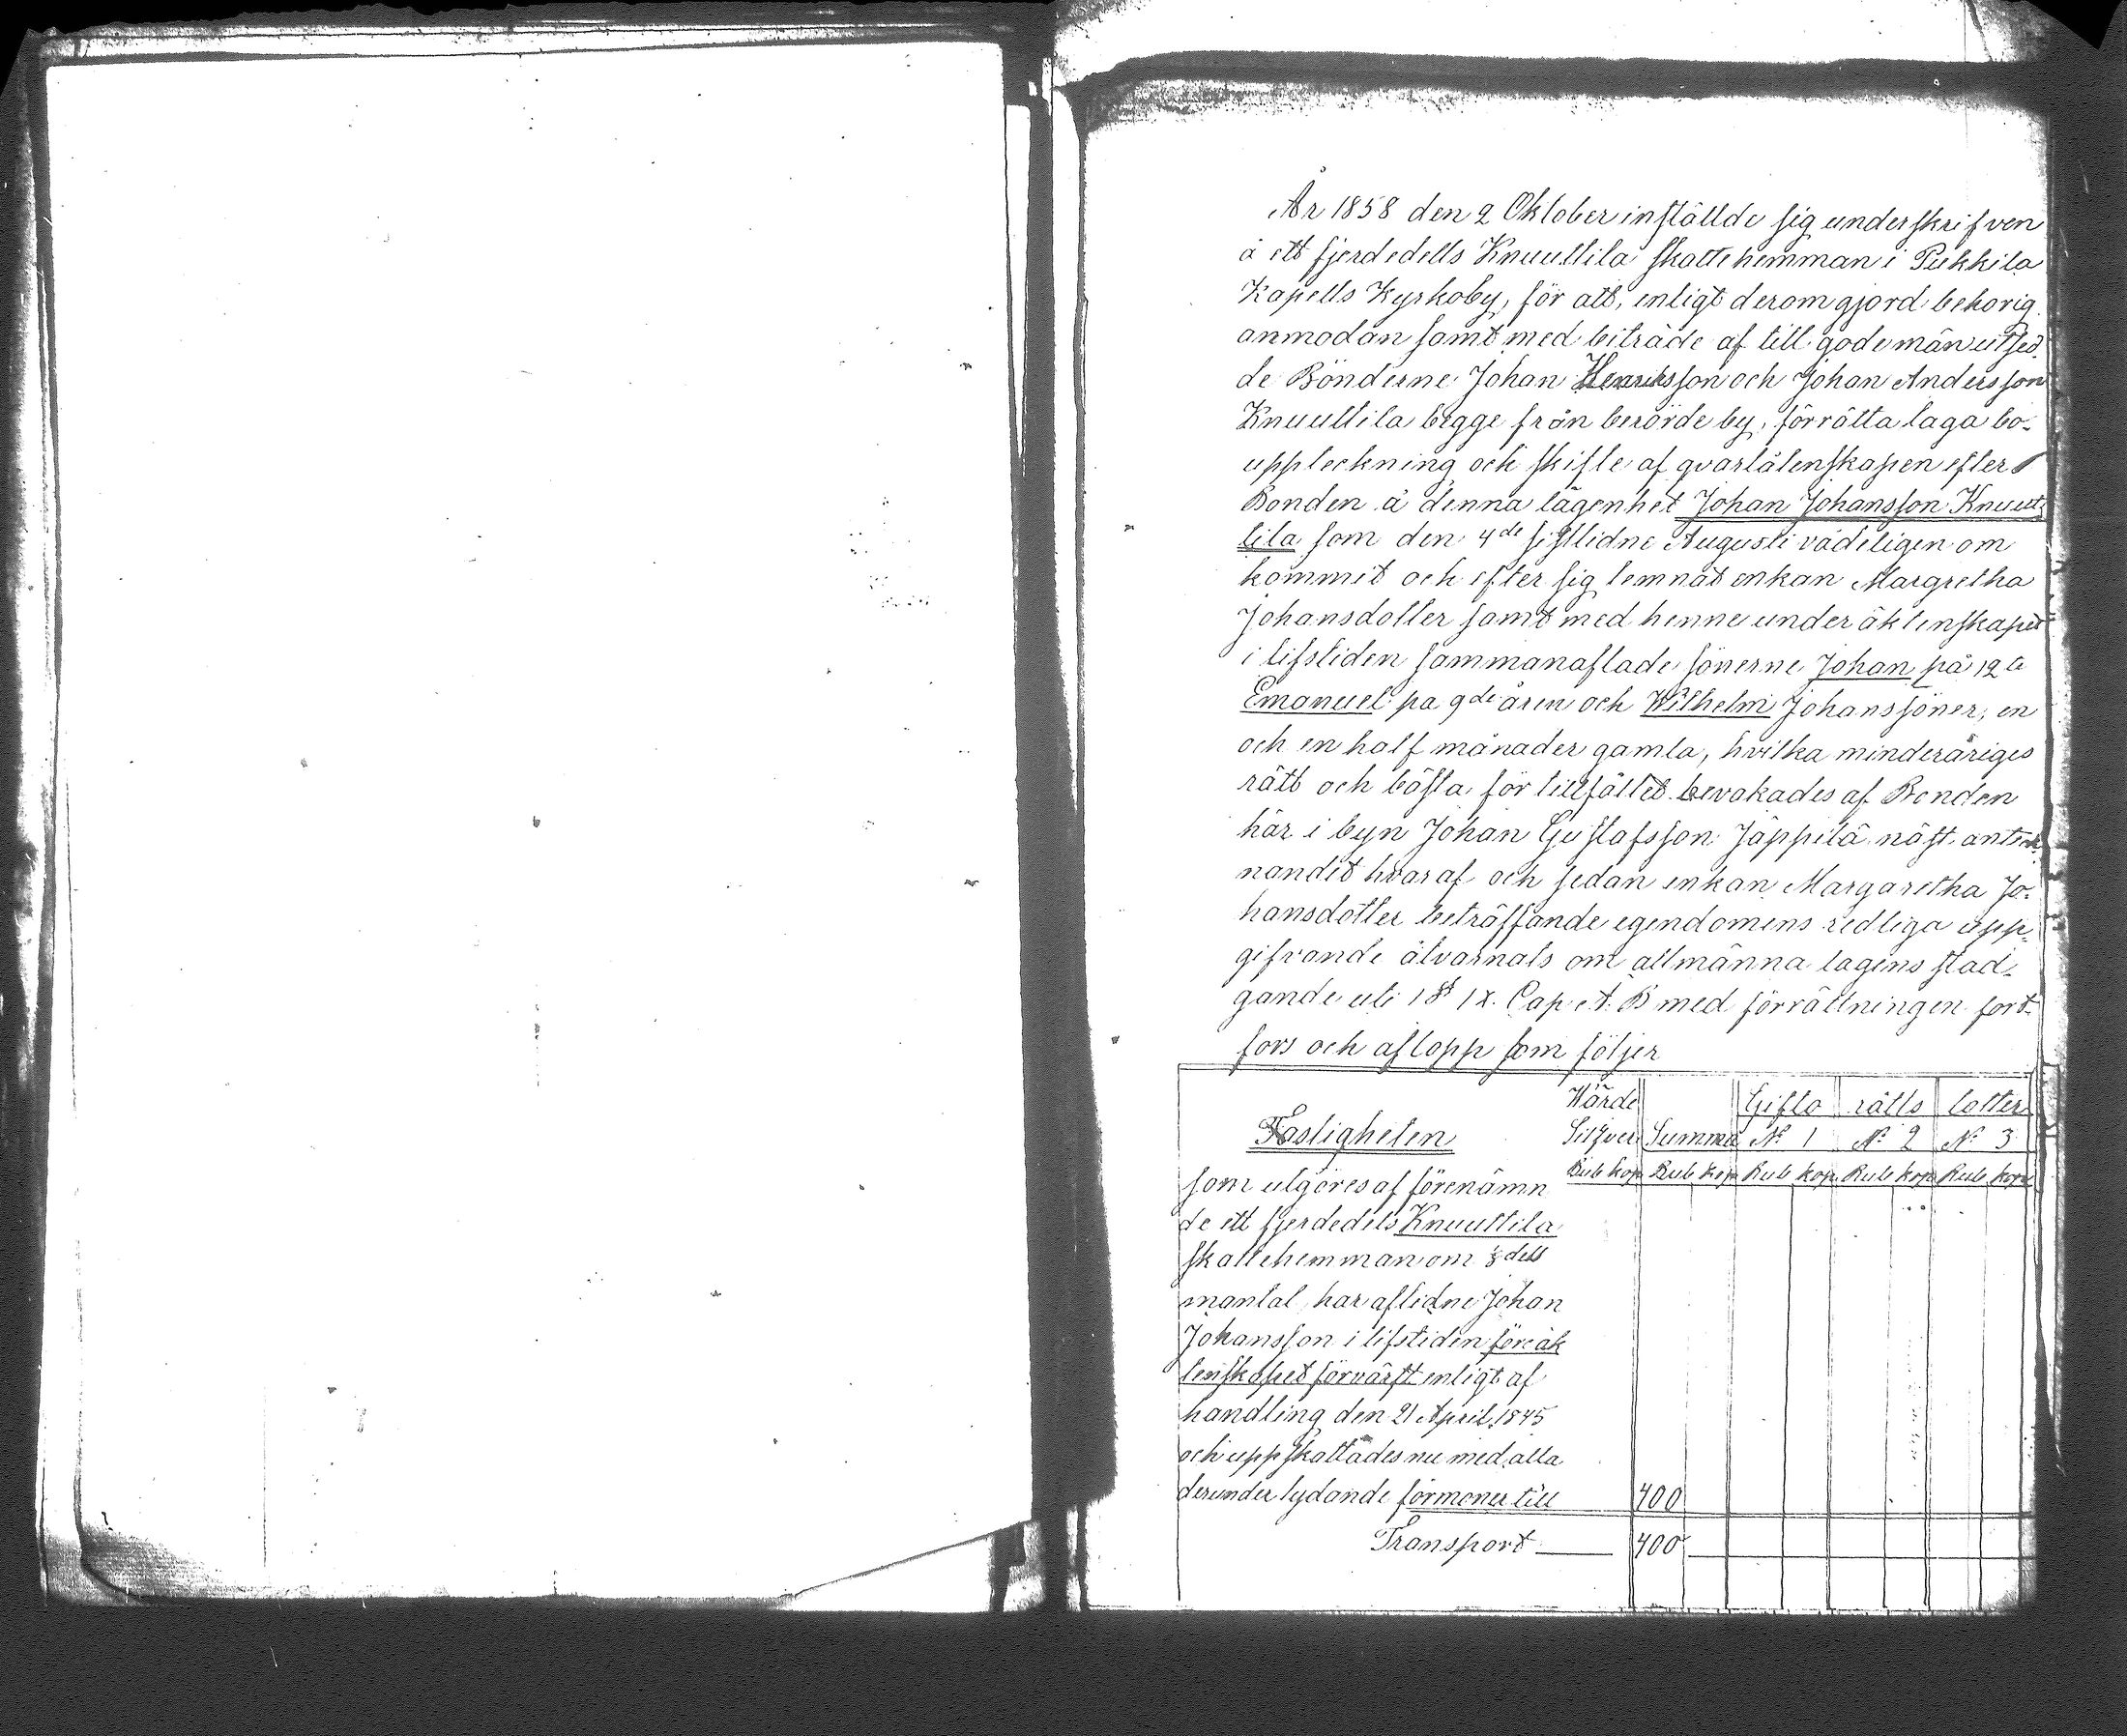 År 1858 den 2 Oktober inställde sig underskrifven
å ett fjerdedells Knuuttila skattehemman i Pukkila
Kapells Kyrkoby, för att, enligt derom gjord behörig
anmodan samt med biträde af till gode män utsed
de Bönderne Johan Henriksson och Johan Andersson
Knuuttila begge från berörde by, förrätta laga bo-
uppteckning och skifte af qvarlåtenskapen efter
Bonden å denna lägenhet Johan Johansson Knuut-
tila som den 4de sistlidne Augusti vådeligen om
kommit och efter sig lemnat enkan Margretha
Johansdotter samt med henne under äktenskapet
i lifstiden sammanaflade sönerne Johan på 12te
Emanuel på 9de åren och Wilhelm Johanssöner, en
och en half månader gamla, hvilka minderåriges
rätt och bästa för tillfället bevakades af Bonden
här i byn Johan Gustafsson Jäppilä näst anteck
nandet hvaraf och sedan enkan Margaretha Jo-
hansdotter beträffande egendomens redliga upp-
gifvande alvarnats om allmänna lagens stad-
gande uti 1 § IX. Cap Ä. B med förrättningen fort-
fors och aflopp som följer
Wärde Gifto rätts lotter
Fastigheten Silfver Summa No 1 No 2 No 3
Rub kop Rub kop Rub kop Rub kop Rub kop
som utgöres af förenämn
de ett fjerdedels Knuuttila
skattehemman om ⅛ dels
mantal, har aflidne Johan
Johansson i lifstiden före äk
tenskapet förvärft enligt af
handling den 21 April 1845
och uppskattades nu med alla
derunder lydande förmoner till 400
Transport 400